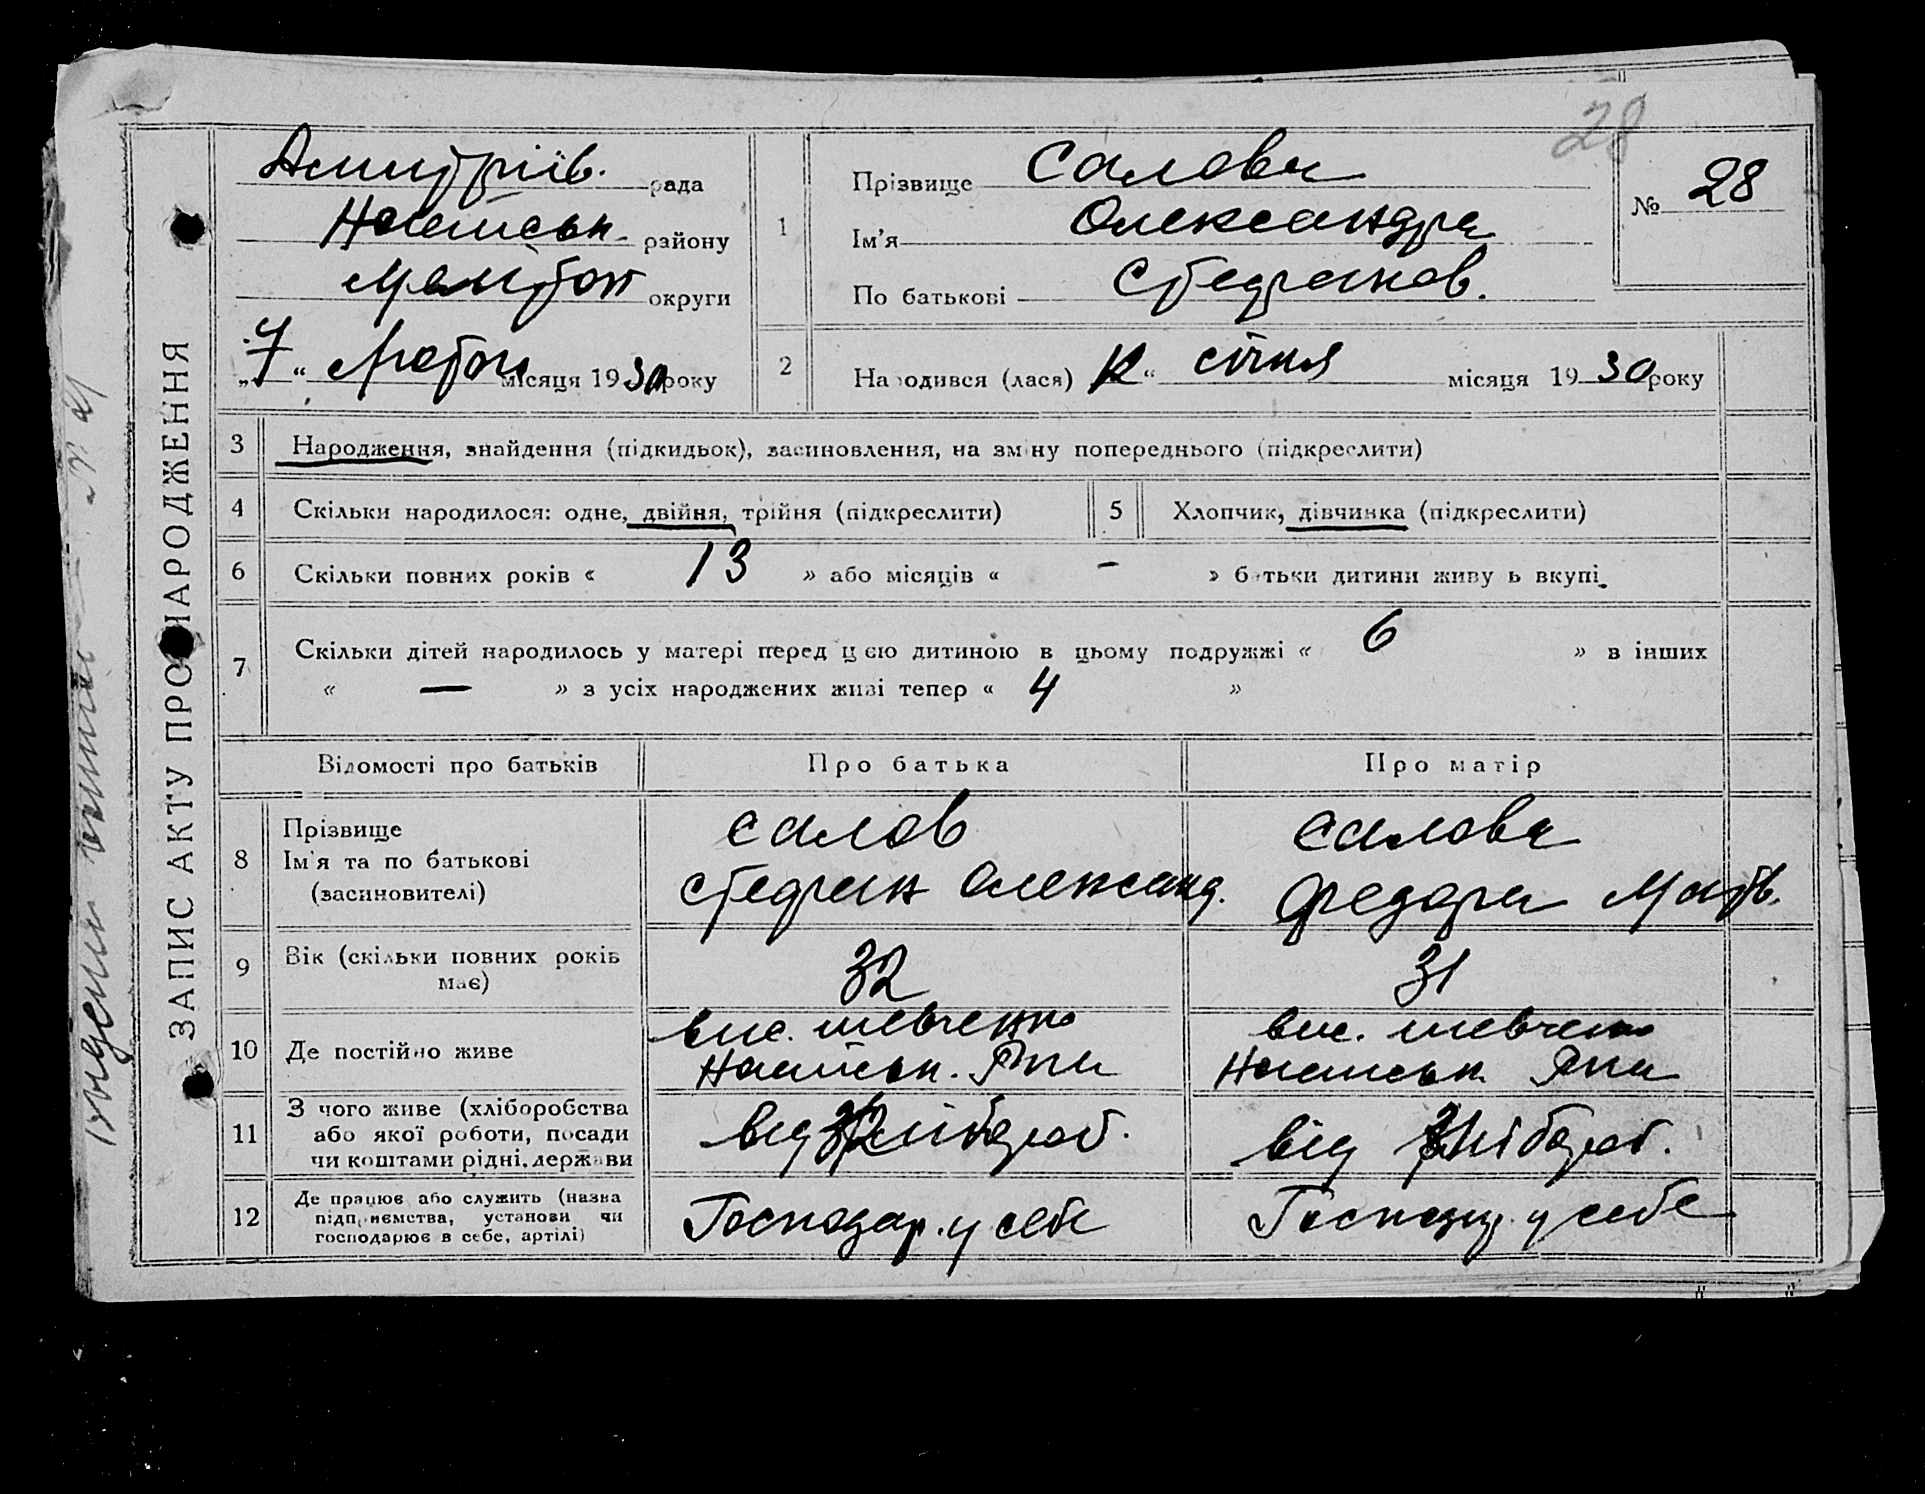 28
Дмитріїв. рада
району
Мелітоп округи
„7“ Лютого місяця 1930 року
1
Прізвище Салова
Ім'я Олександра
По батькові Стефанов.
№ 28
2
Народився (лася) 12 “ січня місяця 1930 року
ЗАПИС АКТУ ПРО НАРОДЖЕННЯ
3 Народження, знайдення (підкидьок), засиновлення, на зміну попереднього (підкреслити)
4 Скільки народилося: одне, двійня, трійня (підкреслити)
5 Хлопчик, дівчинка (підкреслити)
6 Скільки повних років « 13 » або місяців « - » батьки дитини живуть вкупі.
7 Скільки дітей народилось у матері перед цією дитиною в цьому подружжі « 6 » в інших
« — » з усіх народжених живі тепер « 4 »
Відомості про батьків Про батька Про матір
8 Прізвище
Ім'я та по батькові
(засиновителі)
Салов
Стефан Олександ.
Салова
Федора Матв.
9 Вік (скільки повних років
має)
32
31
10 Де постійно живе
вис. Шевченко
Р-на
вис. Шевченко
Р-на
11 З чого живе (хліборобства
або якої роботи, посади
чи коштами рідні, держави
від хлібороб.
від хлібороб.
12 Де працює або служить (назва
підприємства, установи чи
господарює в себе, артілі)
Господар. у себе
Господар. у себе